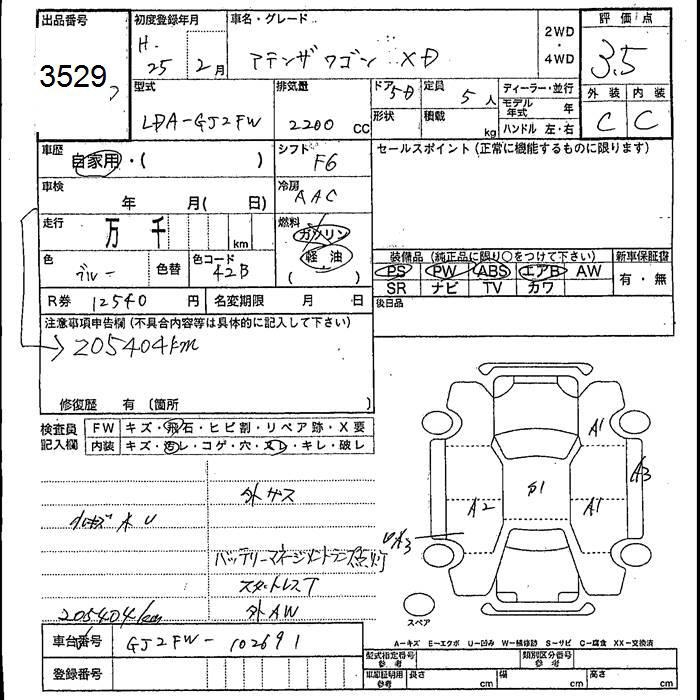 出品番号
3529
初度登録年月
H.
25 2月
車名・グレード
アテンザワゴン XD
2WD
・
4WD
評価点
3.5
外装 内装
C C
型式
LDA-GJ2FW
排気量
2200 cc
ドア 5D
形状
定員 5人
積載 kg
ディーラー・並行
モデル年式 年
ハンドル 左・右
車歴
自家用・( )
シフト F6
セールスポイント(正常に機能するものに限ります)
車検 年 月( 日)
冷房 AAC
走行 万 千 km
燃料
ガソリン
軽油
( )
色 ブルー
色替
色コード 42B
装備品(純正品に限り○をつけて下さい)
新車保証書
PS PW ABS エアB AW
有・無
SR ナビ TV カワ
R券 12540 円
名変期限 月 日
後日品
注意事項申告欄(不具合内容等は具体的に記入して下さい)
205404km
修復歴 有 (箇所 )
検査員
記入欄
FW キズ・飛石・ヒビ割・リペア跡・X要
内装 キズ・汚レ・コゲ・穴・ヌレ・キレ・破レ
外サス
バッテリーマネージメントランプ点灯
スタットレスT
205404km
外AW
A1
A3
A2
A1
スペア
A-キズ E-エクボ U-凹み W-補修跡 S-サビ C-腐食 XX-交換済
車台番号 GJ2FW-102691
登録番号
型式指定番号
参考
類別区分番号
参考
車庫証明用
参考
長さ cm 幅 cm 高さ cm